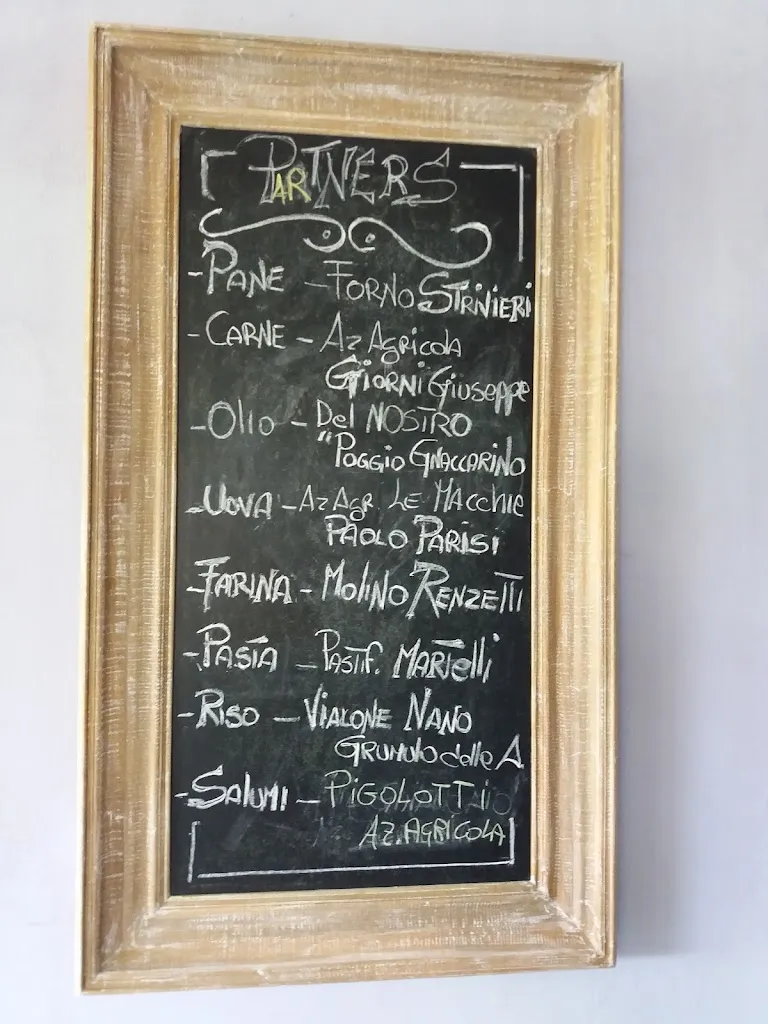 PARTNERS
- PANE - FORNO STRINIERI
- CARNE - Az AgRicola
GIORNI Giuseppe
- Olio - Del NOSTRO
"POGGIO GNACCARINO
- UOVA - Az Agr. LE MAcchie
PAOLO PARISI
- FARINA - MOLINO RENZETTI
- PASTA - PASTIF. MARTElli
- RISO - VIALONE NANO
GRUMOLO delle A
- SAlUMI - PIGOLOTTI
AZ. AGRICOLA